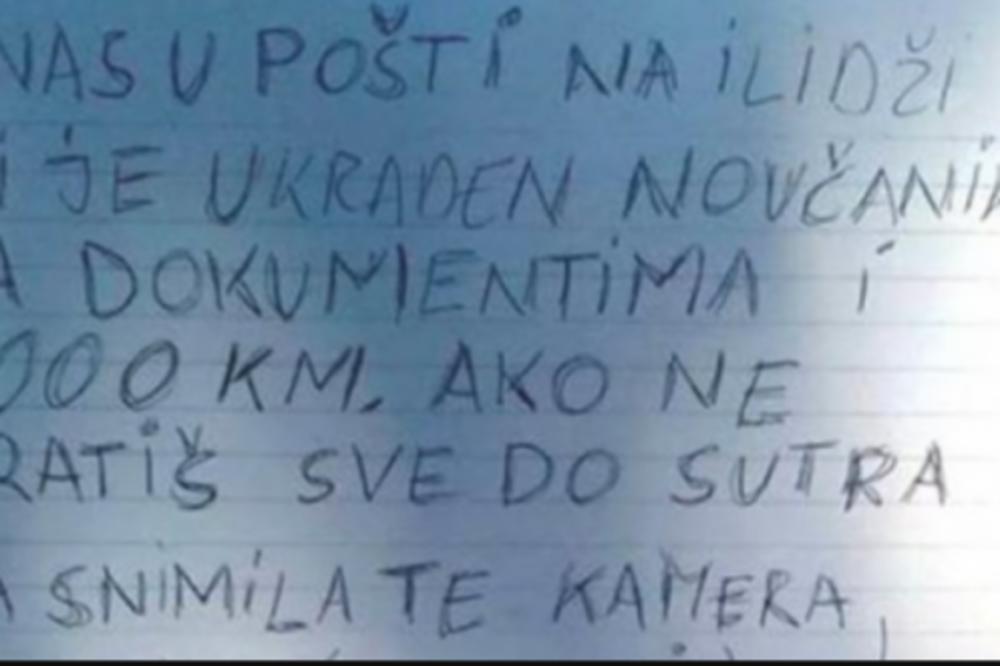 NAS U POŠTI NA ILIDŽI
JE UKRADEN NOVČANI
A DOKUMENTIMA I
000 KM. AKO NE
RATIŠ SVE DO SUTRA
A SNIMILA TE KAMERA,